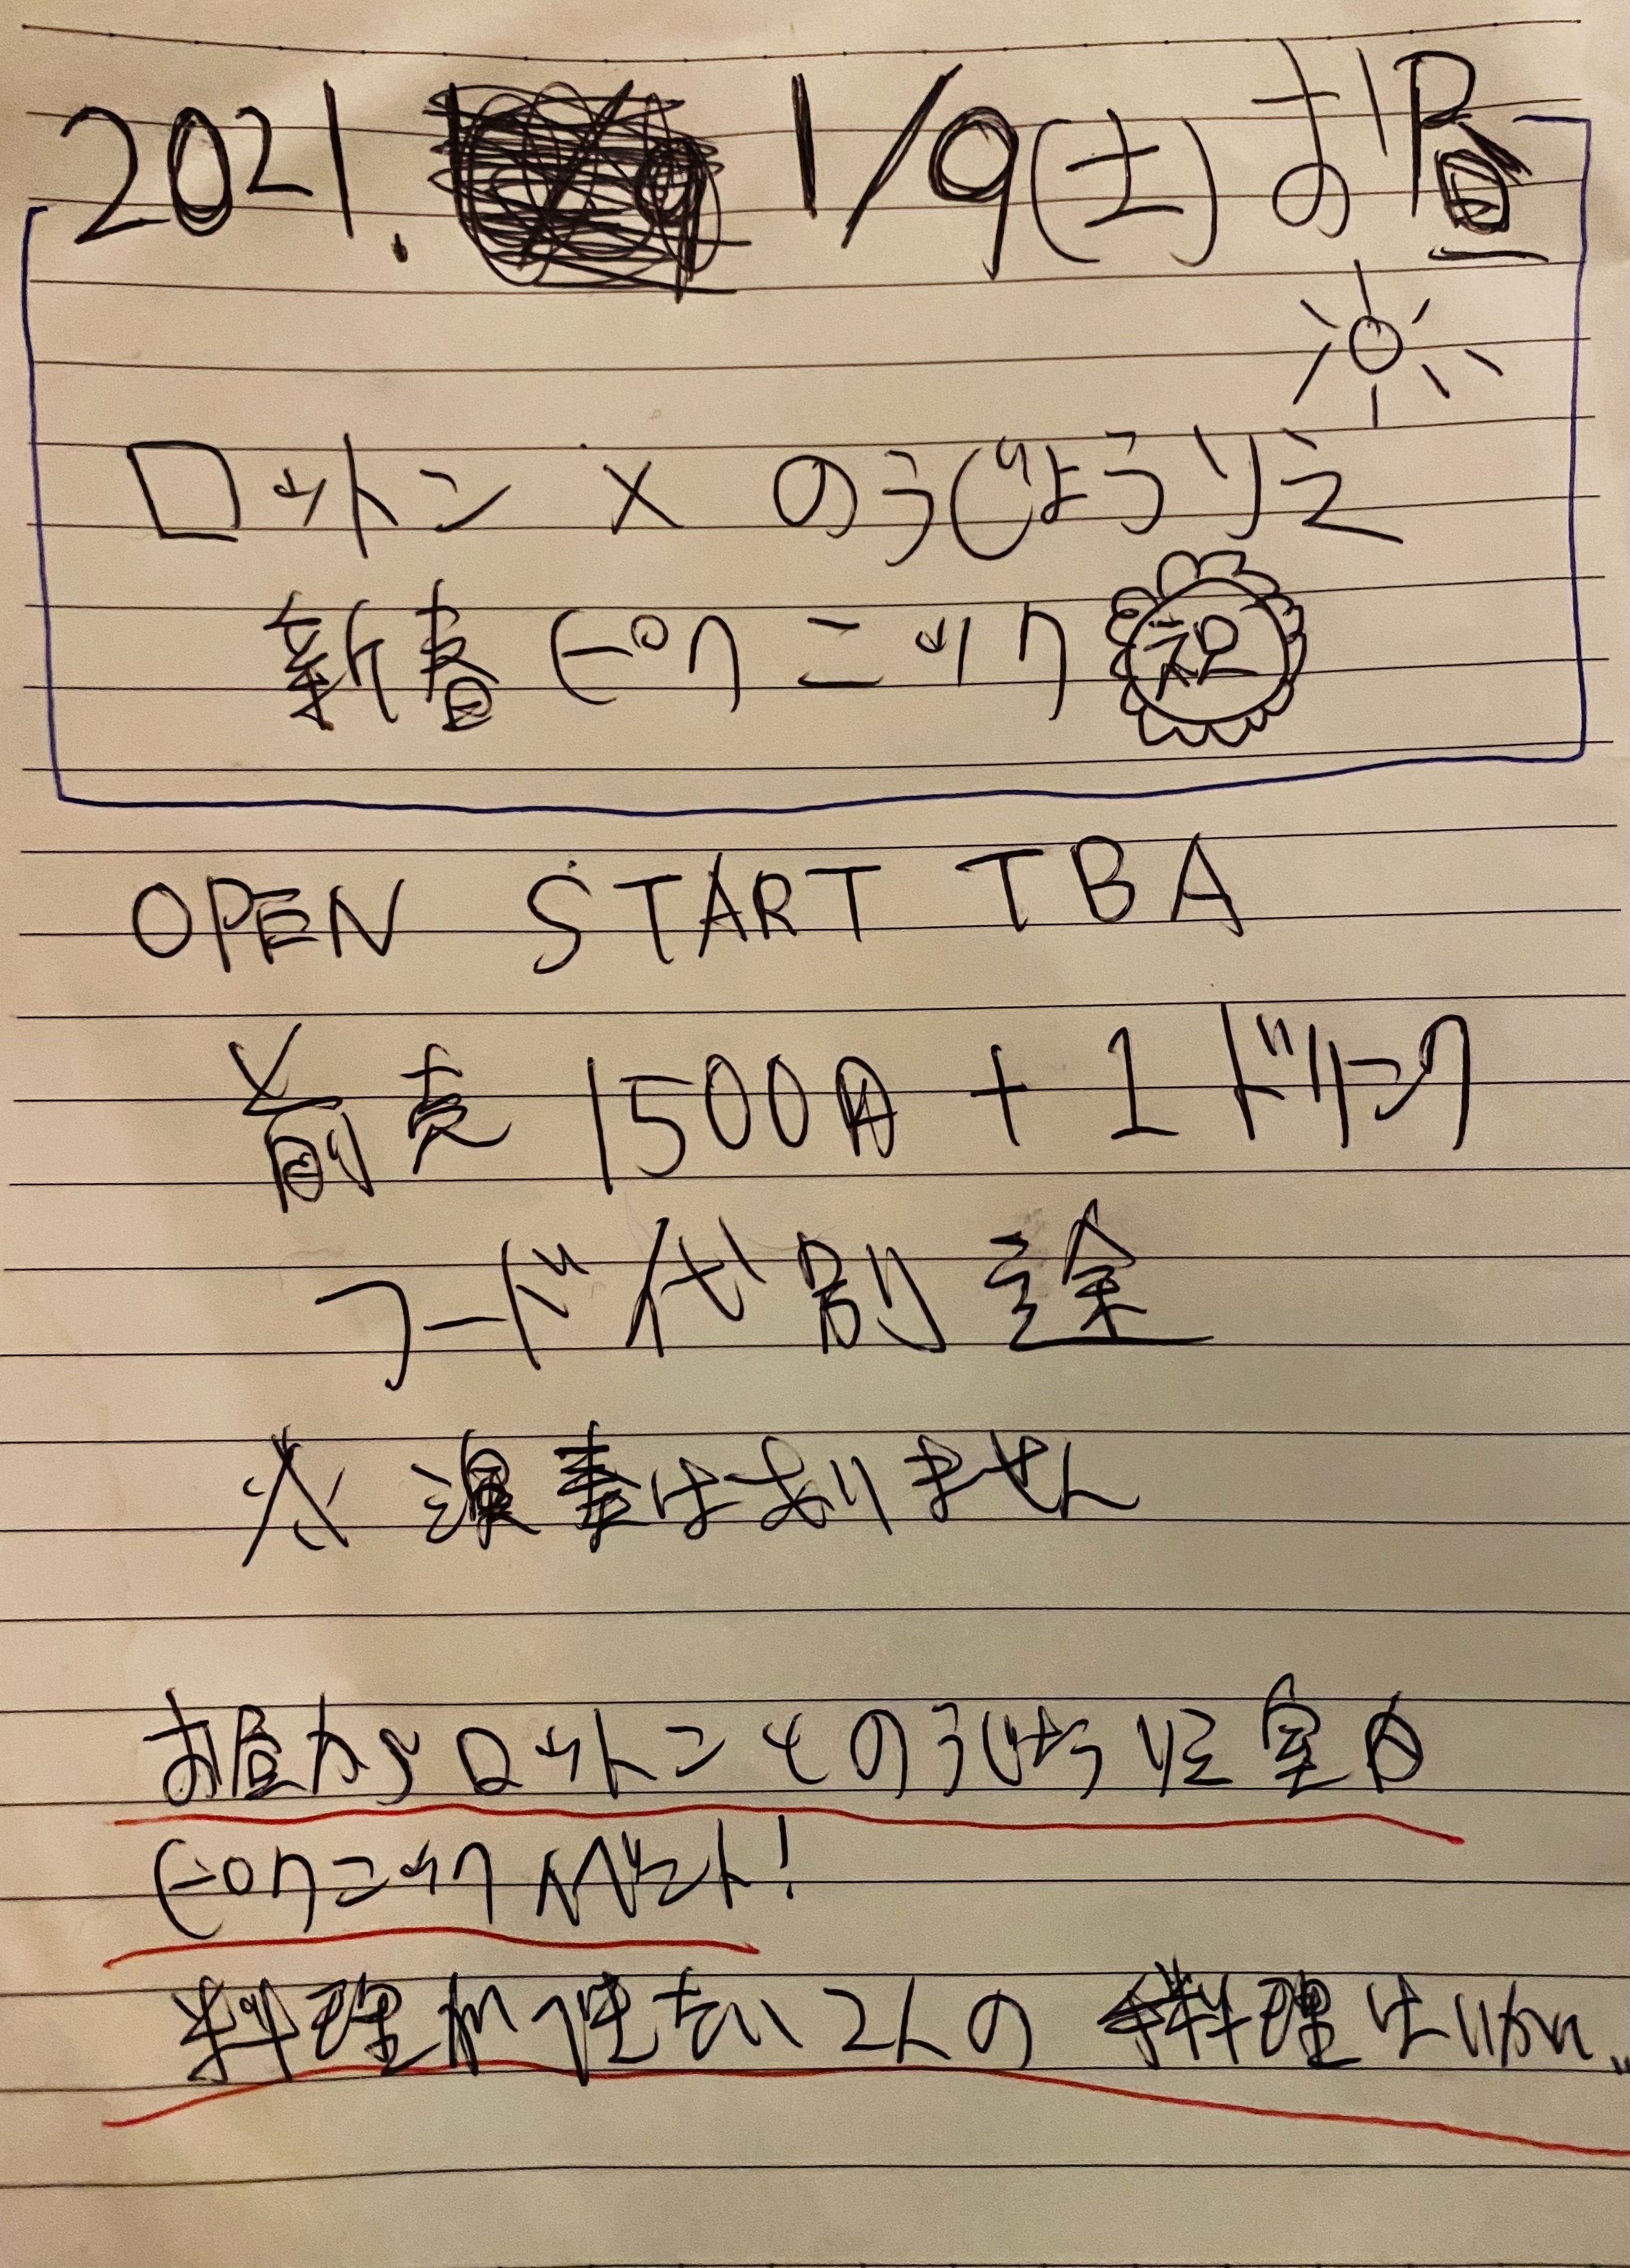 2021. 1/9(土)お昼
ロットン × のうじょうりえ
新春ピクニック 祝
OPEN START TBA
前売 1500円 + 1ドリンク
フード代別途
※ 演奏はありません
お昼からロットンとのうじょうりえ室内
ピクニックイベント!
料理が
の 料理はいかに